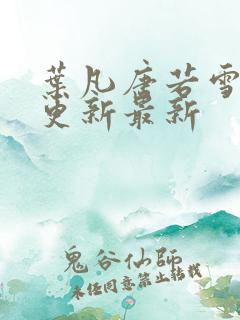 葉凡唐若雪
更新最新
鬼谷仙師
未经同意禁止转载